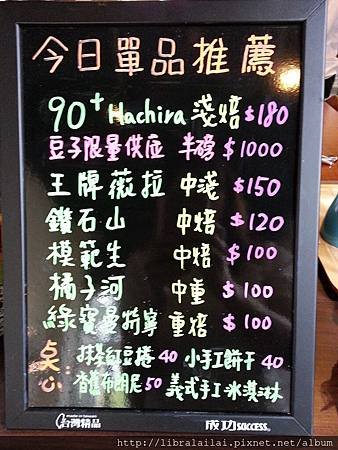 今日單品推薦
90+ Hachira 淺焙 $180
豆子限量供应 半磅 $1000
王牌薇拉 中淺 $150
鑽石山 中焙 $120
模範生 中焙 $100
橘子河 中重 $100
綠寶曼特寧 重焙 $100
点心 抹茶紅豆捲40 小手工餅干40
布朗尼50 義式手工冰淇淋
台灣精品 成功 SUCCESS
http://libralailai.pixnet.net/album